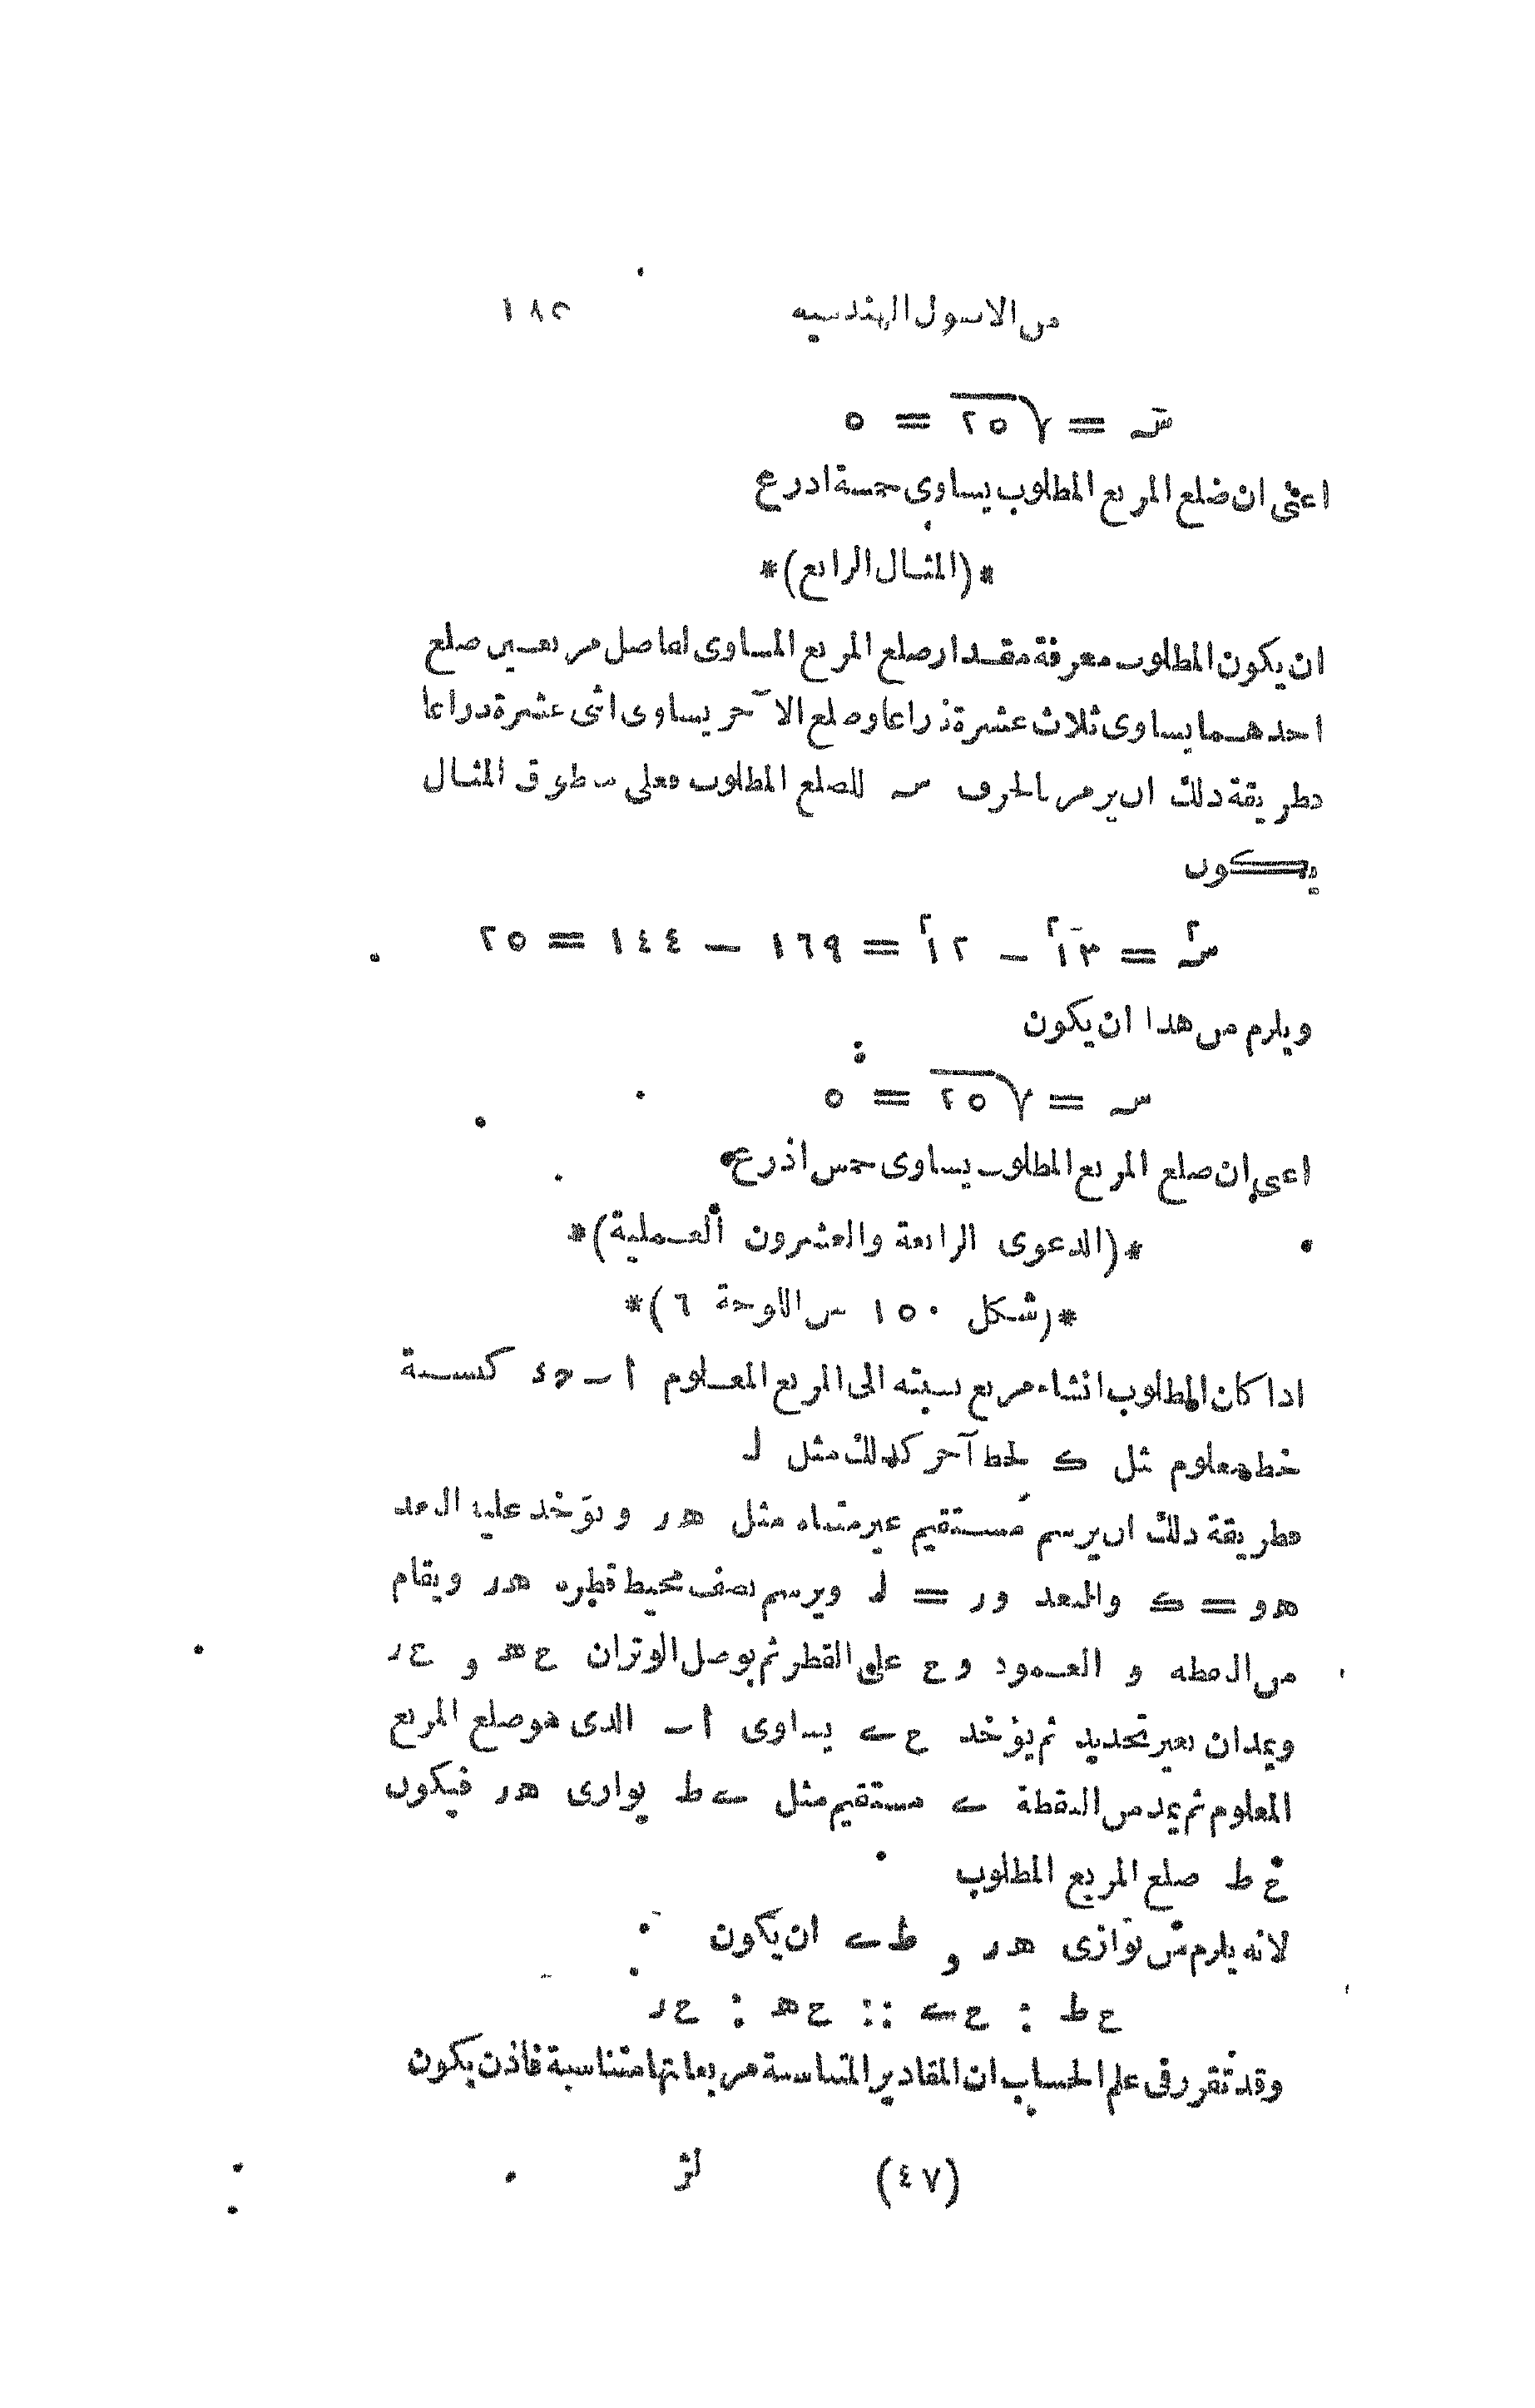 من الاصول الهندسيه ١٨٥
سہ = √٢٥ = ٥
اعنى ان ضلع المربع المطلوب يساوى خمسة اذرع
*(المثال الرابع)*
ان يكون المطلوب معرفة مقدار ضلع المربع المساوى لفاضل مربعين ضلع
احدهما يساوى ثلاث عشرة ذراعا وضلع الآخر يساوى اثنى عشرة ذراعا
فطريقة ذلك ان يرمز بالحرف سہ للضلع المطلوب فعلى منطوق المثال
يكون
سہ٢ = ١٣٢ − ١٢٢ = ١٦٩ − ١٤٤ = ٢٥
ويلزم من هذا ان يكون
سہ = √٢٥ = ٥
اعنى ان ضلع المربع المطلوب يساوى خمس اذرع
*(الدعوى الرابعة والعشرون العملية)*
*(شكل ١٥٠ من اللوحة ٦)*
اذا كان المطلوب انشاء مربع نسبته الى المربع المعلوم ا ب ح د كنسبة
خط معلوم مثل ك لخط آخر كذلك مثل ل
فطريقة ذلك ان يرسم مستقيم غير متناه مثل ه ر و يؤخذ عليه البعد
ه و = ك والبعد و ر = ل ويرسم نصف محيط قطره ه ر ويقام
من النقطه و العمود و ح على القطر ثم يوصل الوتران ح ه و ح ر
ويمدان بغير تحديد ثم يؤخذ ح ى يساوى ا ب الذى هو ضلع المربع
المعلوم ثم يمد من النقطة ى مستقيم مثل ى ط يوازى ه ر فيكون
ح ط ضلع المربع المطلوب
لانه يلزم من توازى ه ر و ط ى ان يكون
ح ط : ح ى :: ح ه : ح ر
وقد تقرر فى علم الحساب ان المقادير المتناسبة مربعاتها متناسبة فاذن يكون
(٤٧)